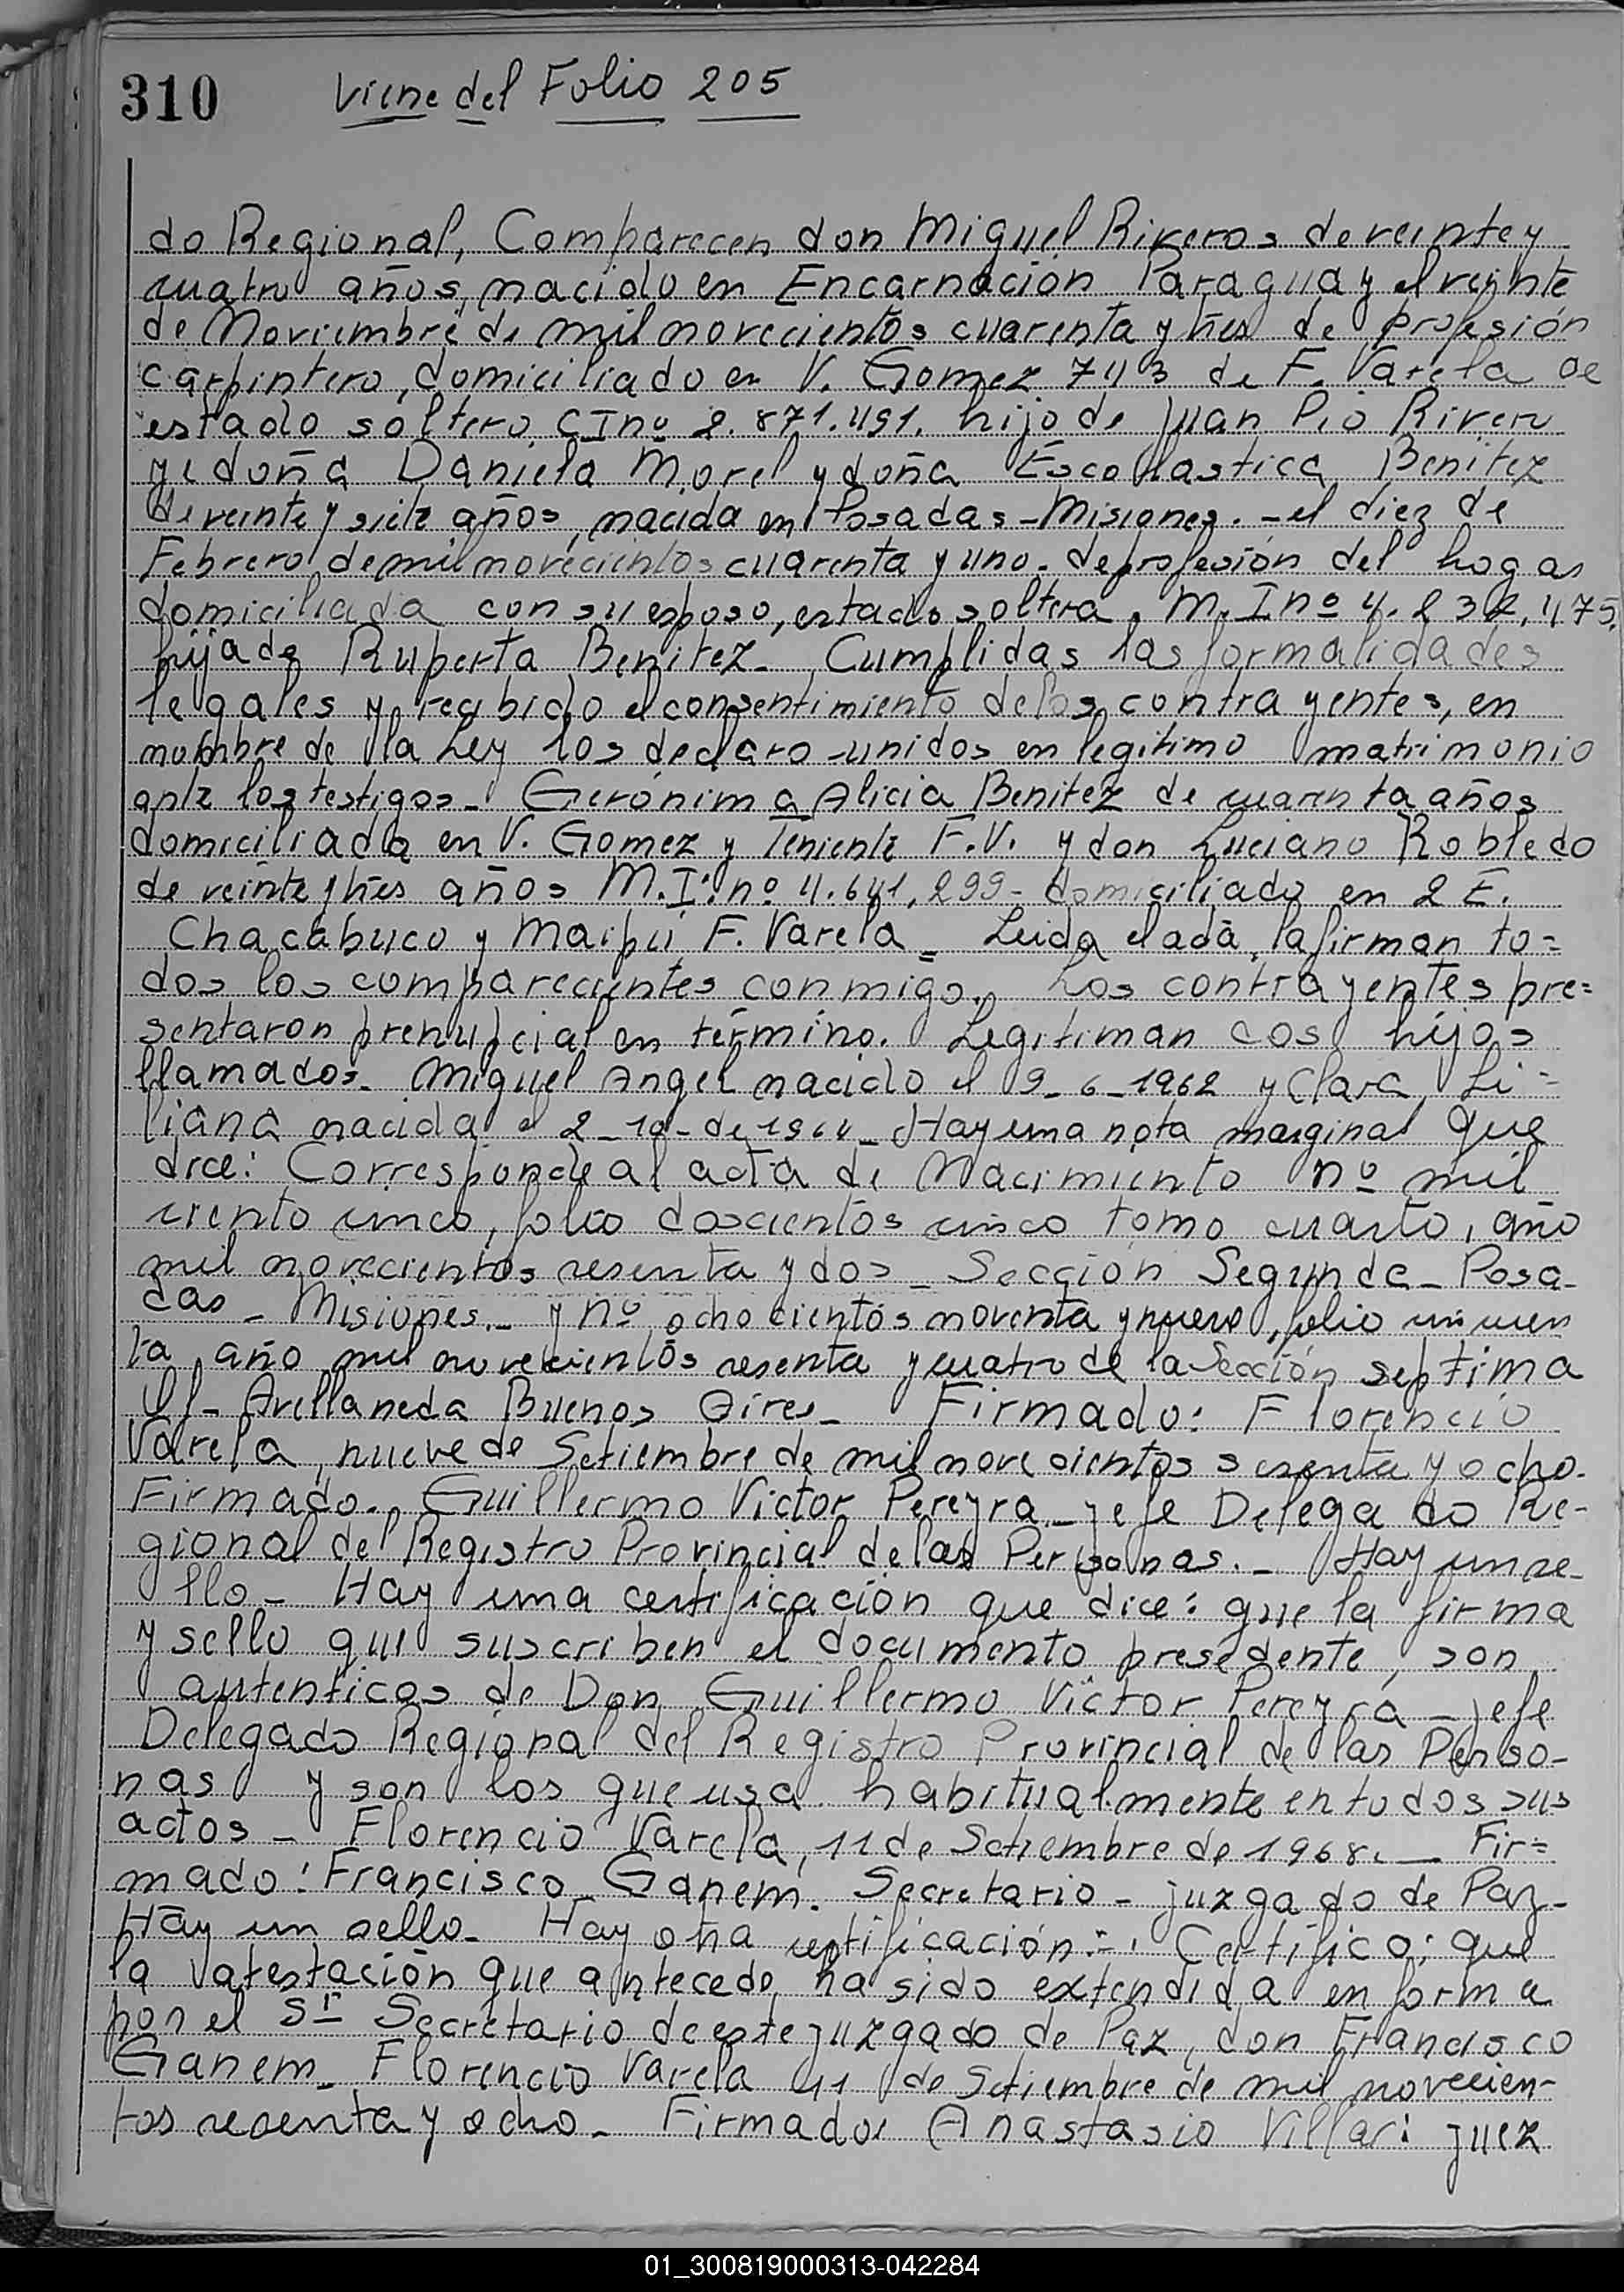 310 Viene del Folio 205
do Regional, Comparecen don Miguel Riveros de veinte y
cuatro años, nacido en Encarnación Paraguay el veinte
de Noviembre de mil novecientos cuarenta y tres de profesión
carpintero, domiciliado en V. Gomez 743 de F. Varela de
estado soltero. CI nº 2.871.491. hijo de Juan Pio Rivero
y de doña Daniela Morel y doña Escolastica Benitez
de veinte y siete años, nacida en Posadas - Misiones. - el diez de
Febrero de mil novecientos cuarenta y uno. de profesión del hogar
domiciliada con su esposo, estado soltera. M. I nº 4.232.475.
hija de Ruperta Benitez - Cumplidas las formalidades
legales y recibido el consentimiento de los contrayentes, en
nombre de la Ley los declaro unidos en legitimo matrimonio
ante los testigos - Gerónima Alicia Benitez de cuarenta años
domiciliada en V. Gomez y Teniente F.V. y don Luciano Robledo
de veinte y tres años M.I: nº 4.641.299 - domiciliado en 2 E.
Chacabuco y Maipú F. Varela = Leida el acta, la firman to=
dos los comparecientes conmigo. Los contrayentes pre=
sentaron prenupcial en término. Legitiman dos hijos
llamados - Miguel Angel nacido el 9-6-1962 y Clara Li=
liana nacida el 2-10- de 1964 - Hay una nota marginal que
dice: Corresponde al acta de Nacimiento nº mil
ciento cinco, folio doscientos cinco tomo cuarto, año
mil novecientos sesenta y dos - Sección Segunda - Posa-
das - Misiones. - y nº ochocientos noventa y nueve, folio cincuen
ta, año mil novecientos sesenta y cuatro de la Sección septima
- Avellaneda Buenos Aires - Firmado: Florencio
Varela, nueve de Setiembre de mil novecientos sesenta y ocho.
Firmado. Guillermo Victor Pereyra - jefe Delegado Re-
gional del Registro Provincial de las Personas. - Hay un se-
llo - Hay una certificación que dice: que la firma
y sello que suscriben el documento presedente, son
autenticos de Don Guillermo Victor Pereyra - jefe
Delegado Regional del Registro Provincial de las Perso-
nas y son los que usa habitualmente en todos sus
actos - Florencio Varela, 11 de Setiembre de 1968. — Fir=
mado: Francisco Ganem. Secretario - juzgado de Paz -
Hay un sello - Hay otra certificación: - Certifico: que
la atestación que antecede ha sido extendida en forma
por el Sr Secretario de este juzgado de Paz, don Francisco
Ganem - Florencio Varela 11 de Setiembre de mil novecien-
tos sesenta y ocho - Firmado: Anastasio Villar: juez
01_300819000313-042284